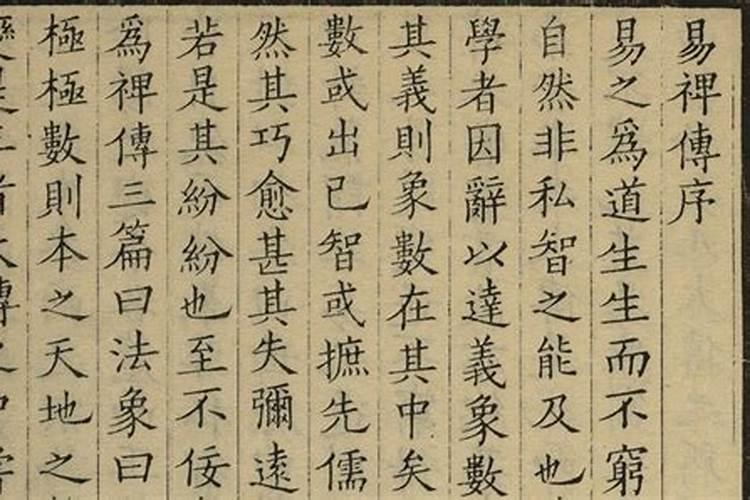 易禆傳序
易之爲道生生而不窮
自然非私智之能及也
學者因辭以達義象數
其義則象數在其中矣
數或出已智或摭先儒
然其巧愈甚其失彌遠
若是其紛紛也至不佞
爲禆傳三篇曰法象曰
極極數則本之天地之